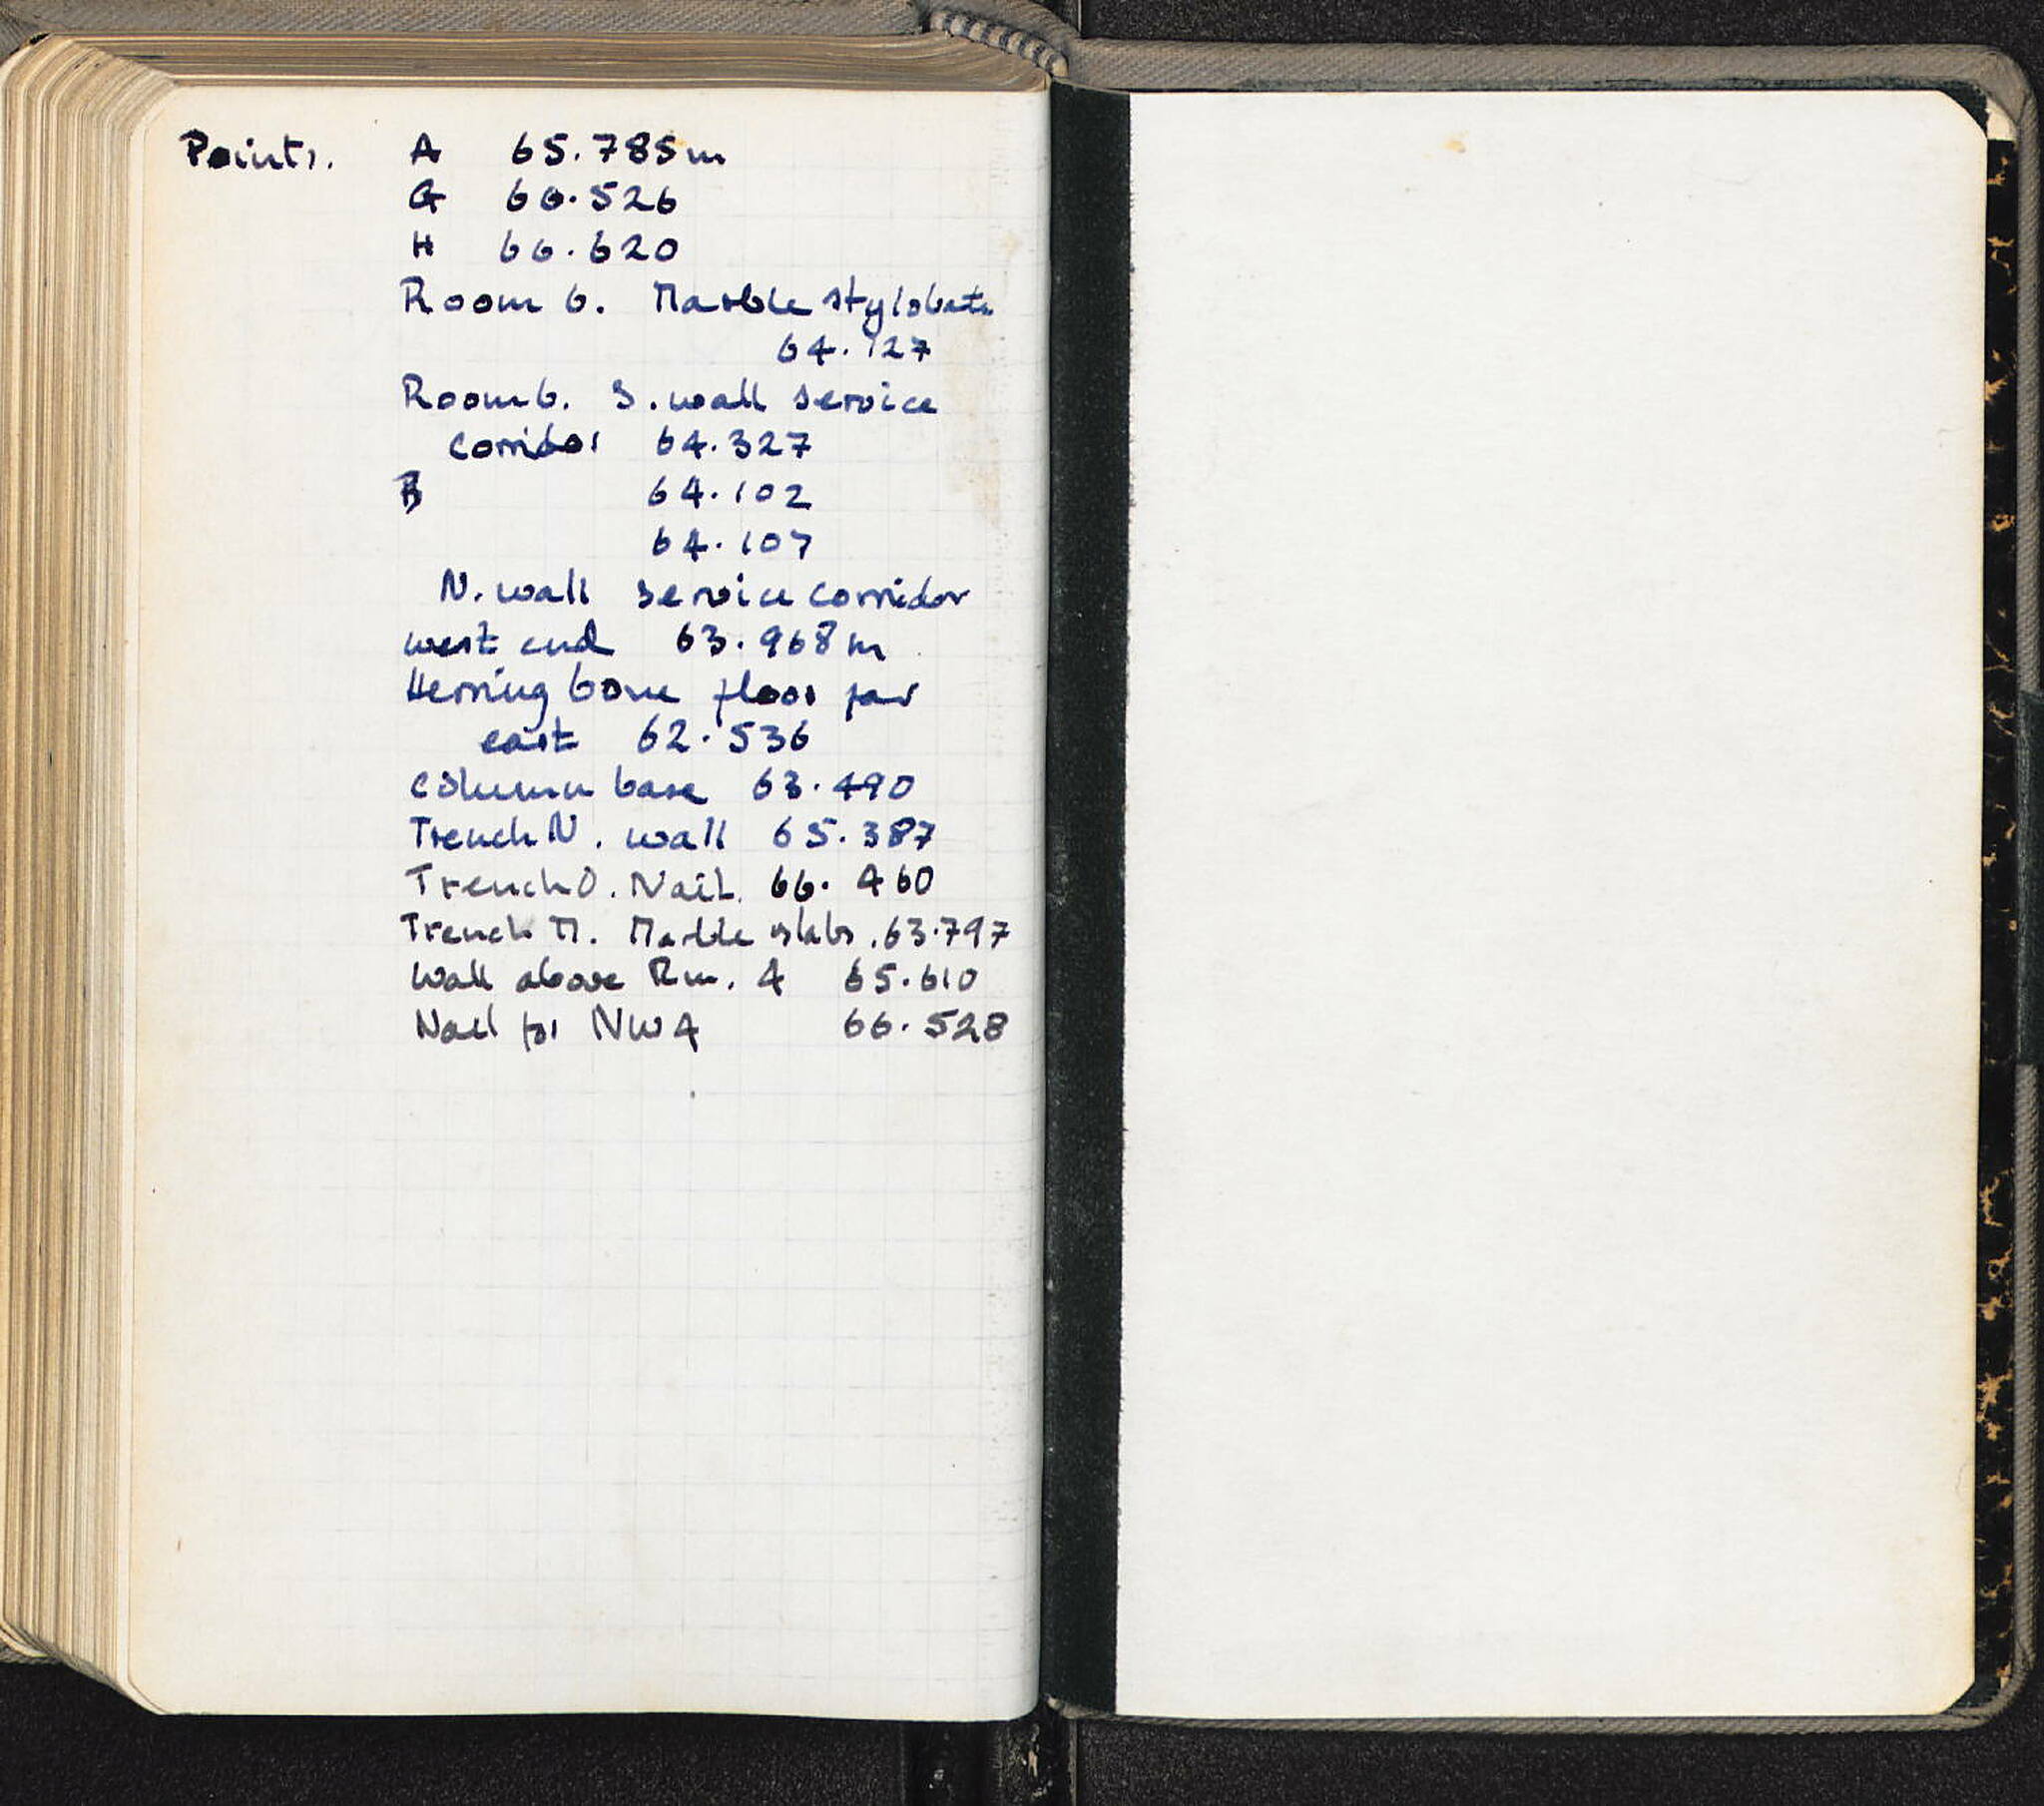 Points. A 65.785m
G 66.526
H 66.620
Room 6. Marble stylobate
64.127
Room 6. S. wall service
corridor 64.327
B 64.102
64.107
N. wall service corridor
west end 63.968m
Herring bone floor far
east 62.536
Column base 63.490
Trench N. wall 65.387
Trench O. Nail. 66.460
Trench M. Marble slabs. 63.797
Wall above Rm. 4 65.610
Nail for NW4 66.528